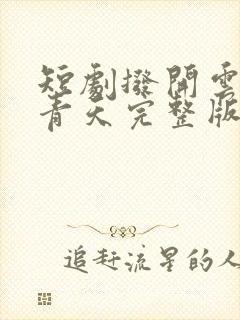 短劇撥開雲
青天完整版
追赶流星的人